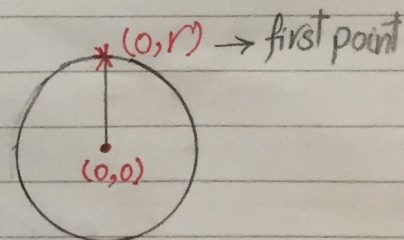 (0,r) → first point
(0,0)